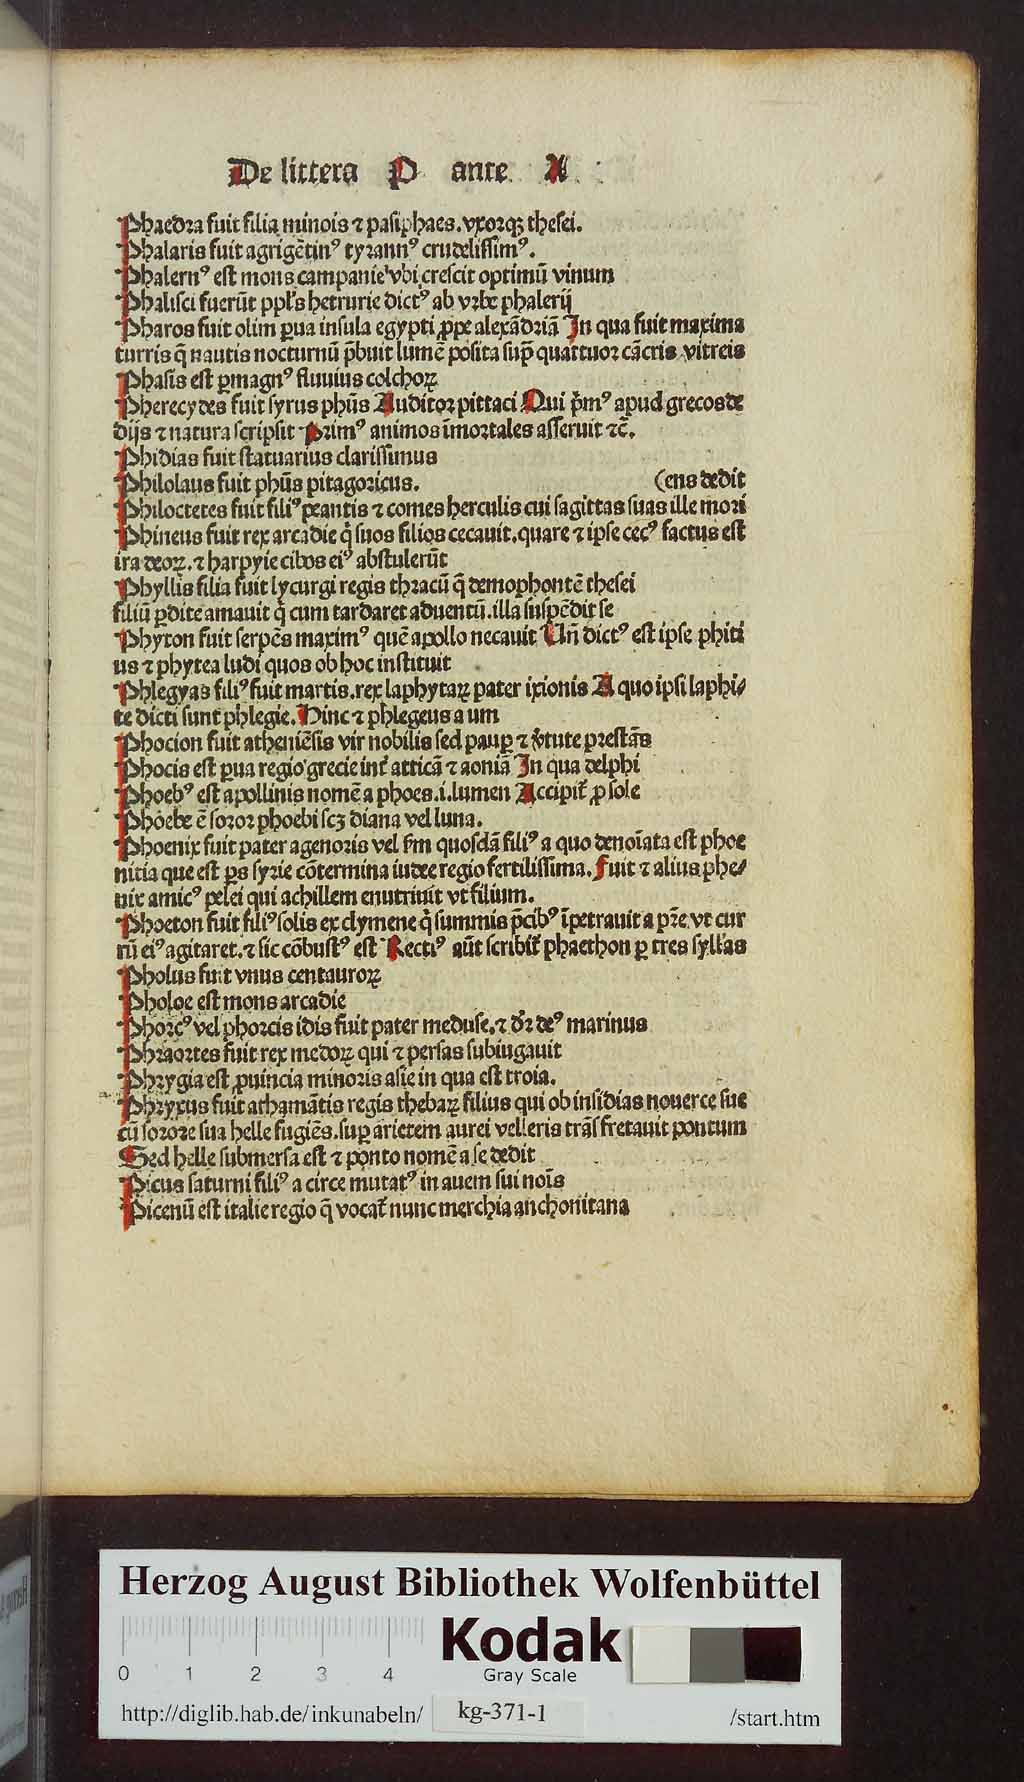 De littera P ante A
Phaedra fuit filia minois ⁊ pasiphaes. vxorqꝫ thesei.
Phalaris fuit agrigētinꝰ tyrannꝰ crudelissimꝰ.
Phalernꝰ est mons campanie vbi crescit optimū vinum
Phalisci fuerūt ppl's hetrurie dictꝰ ab vrbe phalerij
Pharos fuit olim ꝑua insula egypti ꝓpe alexādriā In qua fuit maxima
turris q̄ nautis nocturnū p̄buit lumē posita sup̄ quattuor cācris vitreis
Phasis est ꝑmagnꝰ fluuius colchoꝝ
Pherecydes fuit syrus phūs Auditor pittaci Qui p̄mꝰ apud grecos de
dijs ⁊ natura scripsit Primꝰ animos īmortales asseruit ⁊c̄.
Phidias fuit statuarius clarissimus
Philolaus fuit phūs pitagoricus. (ens dedit
Philoctetes fuit filiꝰ peantis ⁊ comes herculis cui sagittas suas ille mori
Phineus fuit rex arcadie q̇ suos filios cecauit. quare ⁊ ipse cecꝰ factus est
ira deoꝝ. ⁊ harpyie cibos eiꝰ abstulerūt
Phyllis filia fuit lycurgi regis thracū q̄ demophontē thesei
filiū ꝑdite amauit q̇ cum tardaret aduentū. illa suspēdit se
Phyton fuit serpēs maximꝰ quē apollo necauit Un̄ dictꝰ est ipse phiti
us ⁊ phytea ludi quos ob hoc instituit
Phlegyas filiꝰ fuit martis. rex laphytaꝝ pater ixionis A quo ipsi laphi⸗
te dicti sunt phlegie. Hinc ⁊ phlegeus a um
Phocion fuit atheniēsis vir nobilis sed pauꝑ ⁊ v̓tute prestās
Phocis est ꝑua regio grecie int̓ atticā ⁊ aoniā In qua delphi
Phoebꝰ est apollinis nomē a phoes .i. lumen Accipit̓ ꝓ sole
Phoebe ē soror phoebi scꝫ diana vel luna.
Phoenix fuit pater agenoris vel s̄m quosdā filiꝰ a quo denoīata est phoe
nitia que est ꝑs syrie cōtermina iudee regio fertilissima. Fuit ⁊ alius phe⸗
nix amicꝰ pelei qui achillem enutriuit vt filium.
Phoeton fuit filiꝰ solis ex clymene q̇ summis p̄cibꝰ īpetrauit a pr̄e vt cur
rū eiꝰ agitaret. ⁊ sic cōbustꝰ est Rectiꝰ aūt scribit̓ phaethon ꝑ tres syll'as
Pholus fuit vnus centauroꝝ
Pholoe est mons arcadie
Phorcꝰ vel phorcis idis fuit pater meduse. ⁊ dr̄ deꝰ marinus
Phraortes fuit rex medoꝝ qui ⁊ persas subiugauit
Phrygia est ꝓuincia minoris asie in qua est troia.
Phryxus fuit athamātis regis thebaꝝ filius qui ob insidias nouerce sue
cū sorore sua helle fugiēs. suꝑ arietem aurei velleris trāsfretauit pontum
Sed helle submersa est ⁊ ponto nomē a se dedit
Picus saturni filiꝰ a circe mutatꝰ in auem sui noīs
Picenū est italie regio q̄ vocat̓ nunc merchia anchonitana
Herzog August Bibliothek Wolfenbüttel
Kodak
Gray Scale
0 1 2 3 4
http://diglib.hab.de/inkunabeln/ kg-371-1 /start.htm